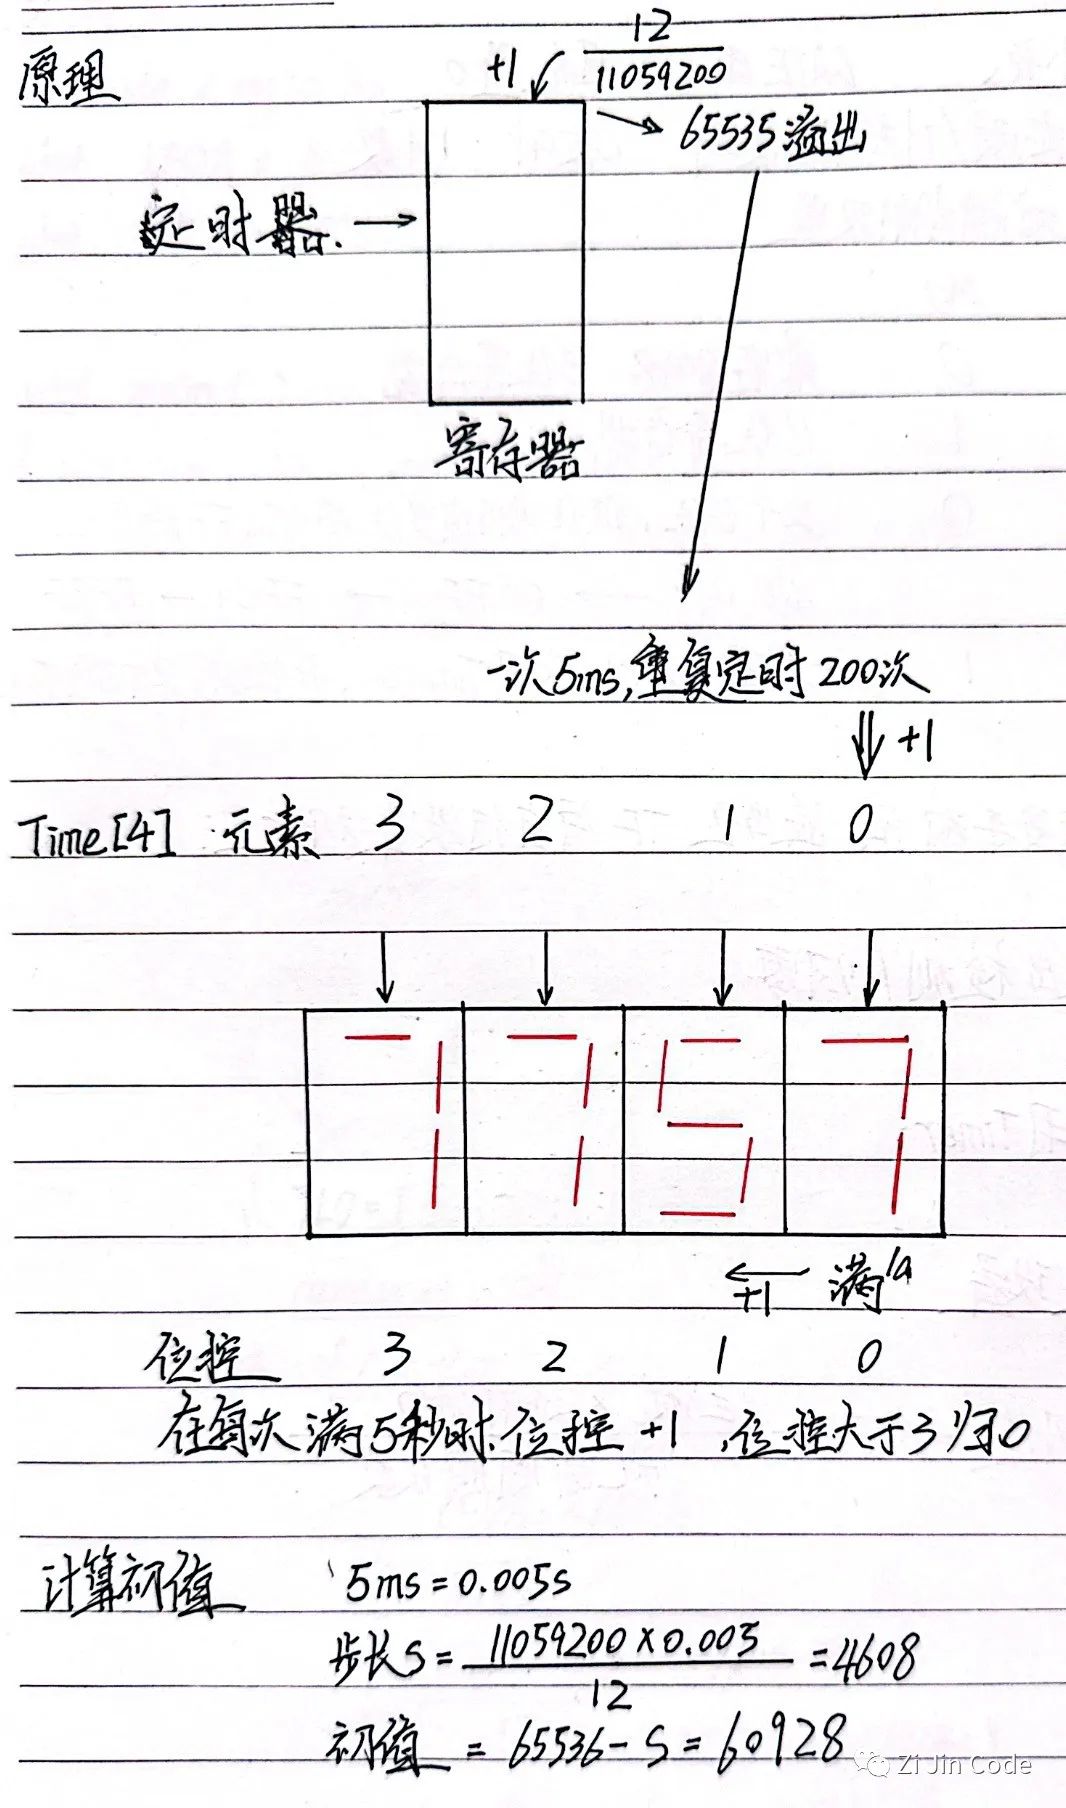 原理
+1 12/11059200
65535溢出
定时器
寄存器
一次5ms,重复定时200次
+1
Time[4] 元素 3 2 1 0
7 7 5 7
+1 满
位控 3 2 1 0
在每次满5秒时,位控+1,位控大于3归0
计算初值 5ms=0.005s
步长S=11059200×0.005/12=4608
初值=65536-S=60928
Zi Jin Code